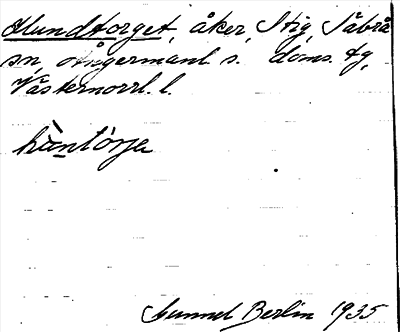 Hundtorget, åker, Stig, Säbrå
sn Ångermanl s. doms. tg,
Västernorrl. l.
hàntórja
Gunnel Berlin 1935